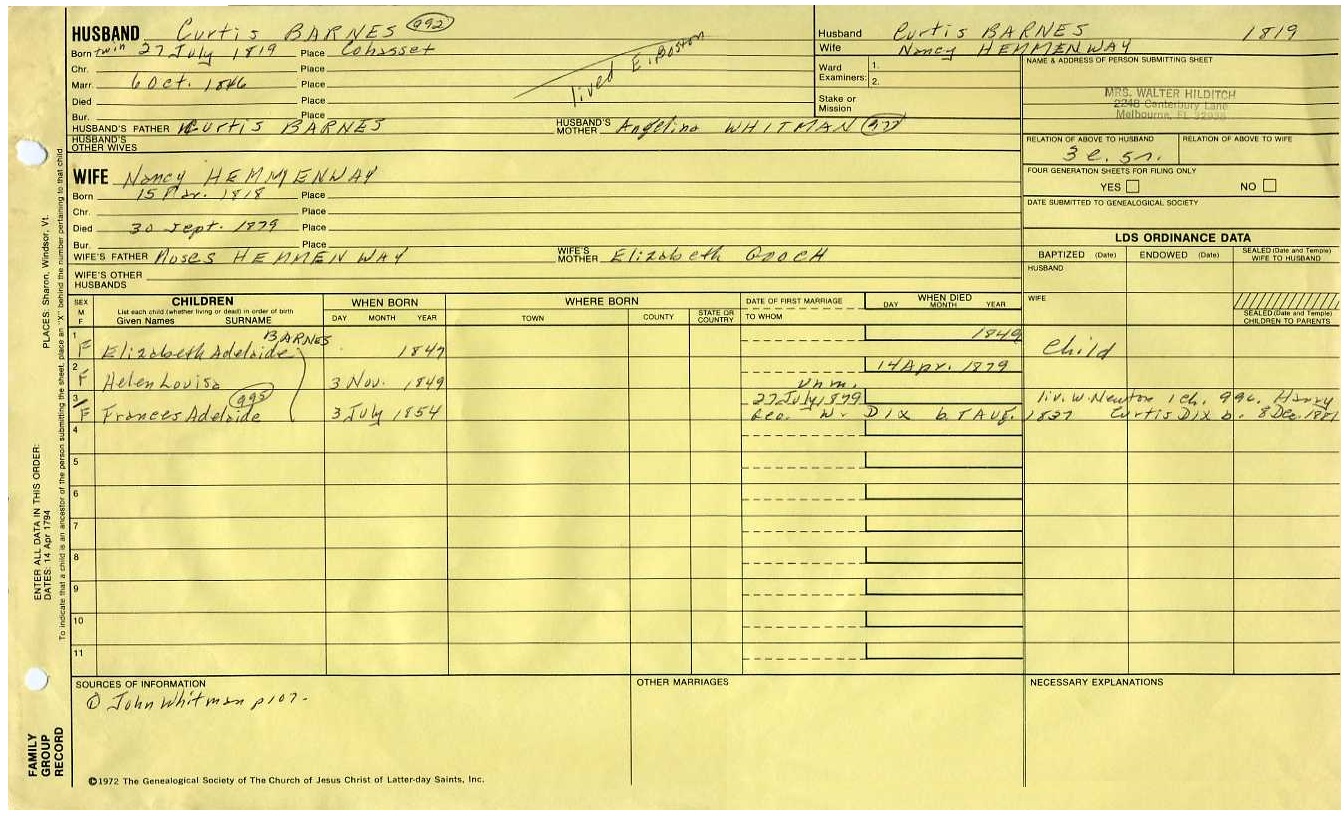 HUSBAND Curtis BARNES 992
Born twin 27 July 1819 Place Cohasset
Chr. Place
Marr. 6 Oct. 1846 Place
Died Place
Bur. Place
lived E. Boston
HUSBAND'S FATHER Curtis BARNES HUSBAND'S MOTHER Angelina WHITMAN
HUSBAND'S OTHER WIVES
WIFE Nancy HEMMENWAY
Born 15 Mar. 1818 Place
Chr. Place
Died 30 Sept. 1879 Place
Bur. Place
WIFE'S FATHER Moses HEMMENWAY WIFE'S MOTHER Elizabeth GOOCH
WIFE'S OTHER HUSBANDS
Husband Curtis BARNES 1819
Wife Nancy HEMMENWAY
Ward 1.
Examiners: 2.
Stake or Mission
NAME & ADDRESS OF PERSON SUBMITTING SHEET
MRS. WALTER HILDITCH
2248 Canterbury Lane
Melbourne, FL
RELATION OF ABOVE TO HUSBAND RELATION OF ABOVE TO WIFE
3 c. 5r.
FOUR GENERATION SHEETS FOR FILING ONLY
YES NO
DATE SUBMITTED TO GENEALOGICAL SOCIETY
LDS ORDINANCE DATA
BAPTIZED (Date) ENDOWED (Date) SEALED (Date and Temple) WIFE TO HUSBAND
HUSBAND
WIFE
SEALED (Date and Temple) CHILDREN TO PARENTS
SEX M F
CHILDREN
List each child (whether living or dead) in order of birth
Given Names SURNAME
WHEN BORN
DAY MONTH YEAR
WHERE BORN
TOWN COUNTY STATE OR COUNTRY
DATE OF FIRST MARRIAGE
TO WHOM
WHEN DIED
DAY MONTH YEAR
BARNES
1 F Elizabeth Adelaide 1847 1849 Child
2 F Helen Louisa 3 Nov. 1849 unm. 14 Apr. 1879
3 F Frances Adelaide 995 3 July 1854 27 July 1879 liv. W. Newton 1 ch. 996. Henry
Geo. W. DIX b. 7 AUG. 1827 Curtis Dix b. 8 Dec. 1881
4
5
6
7
8
9
10
11
SOURCES OF INFORMATION
① John Whitman p107-
OTHER MARRIAGES
NECESSARY EXPLANATIONS
©1972 The Genealogical Society of The Church of Jesus Christ of Latter-day Saints, Inc.
FAMILY GROUP RECORD
ENTER ALL DATA IN THIS ORDER:
DATES: 14 Apr 1794
PLACES: Sharon, Windsor, Vt.
To indicate that a child is an ancestor of the person submitting the sheet, place an "X" behind the number pertaining to that child